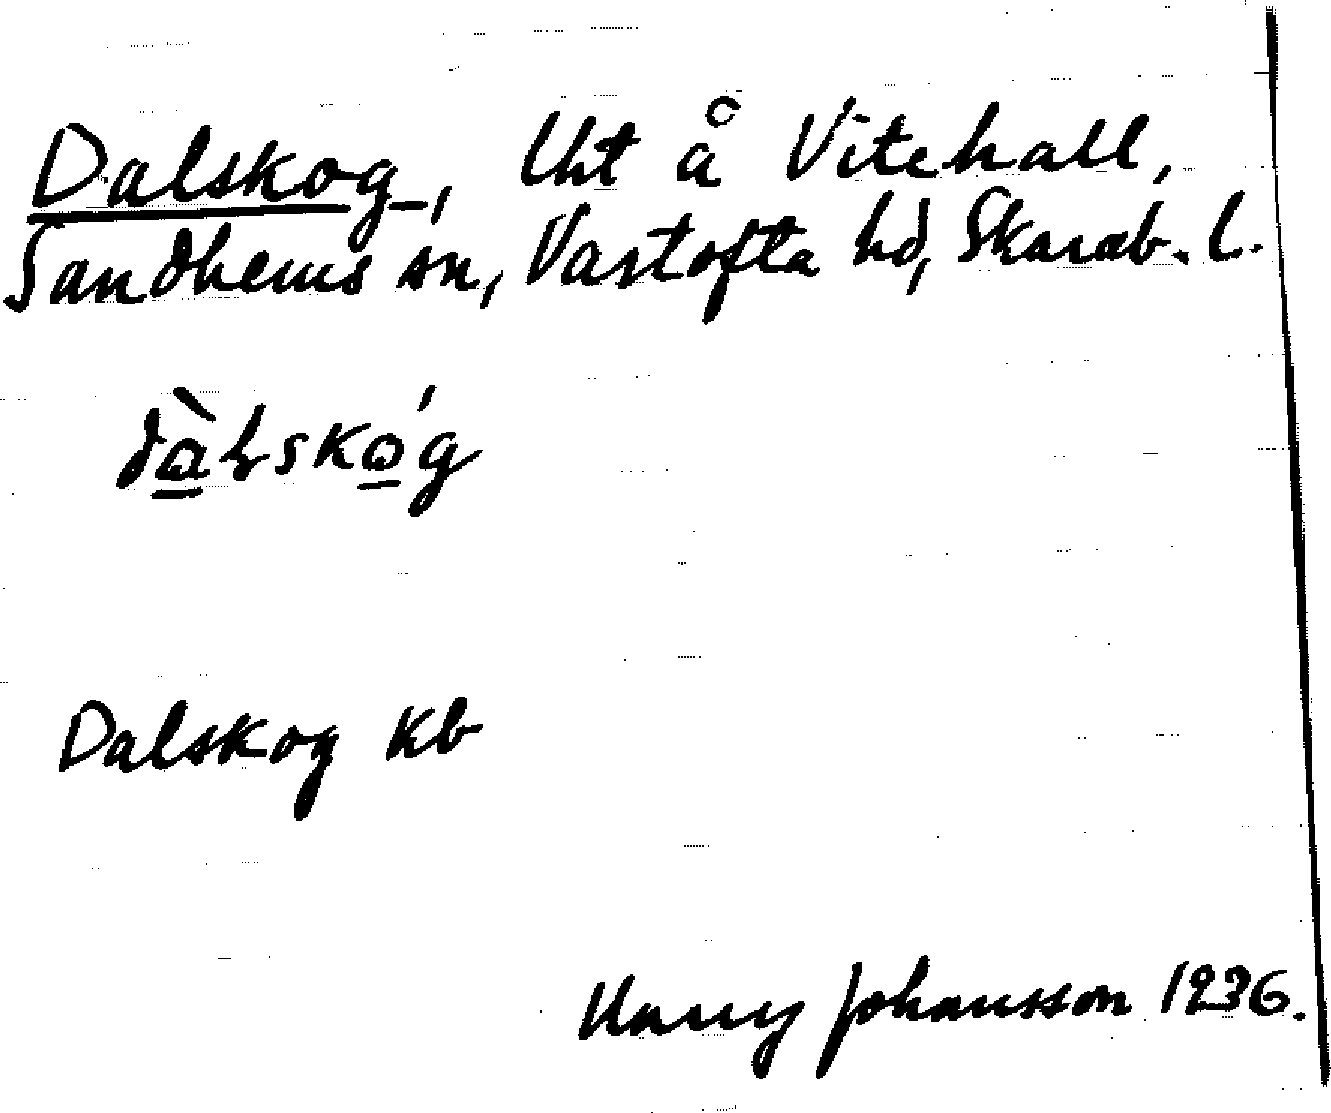 Dalskog, lht å Vitehall,
Sandhems sn, Vartofta hd, Skarab. l.
dàlskóg
Dalskog kb
Harry Johansson 1936.